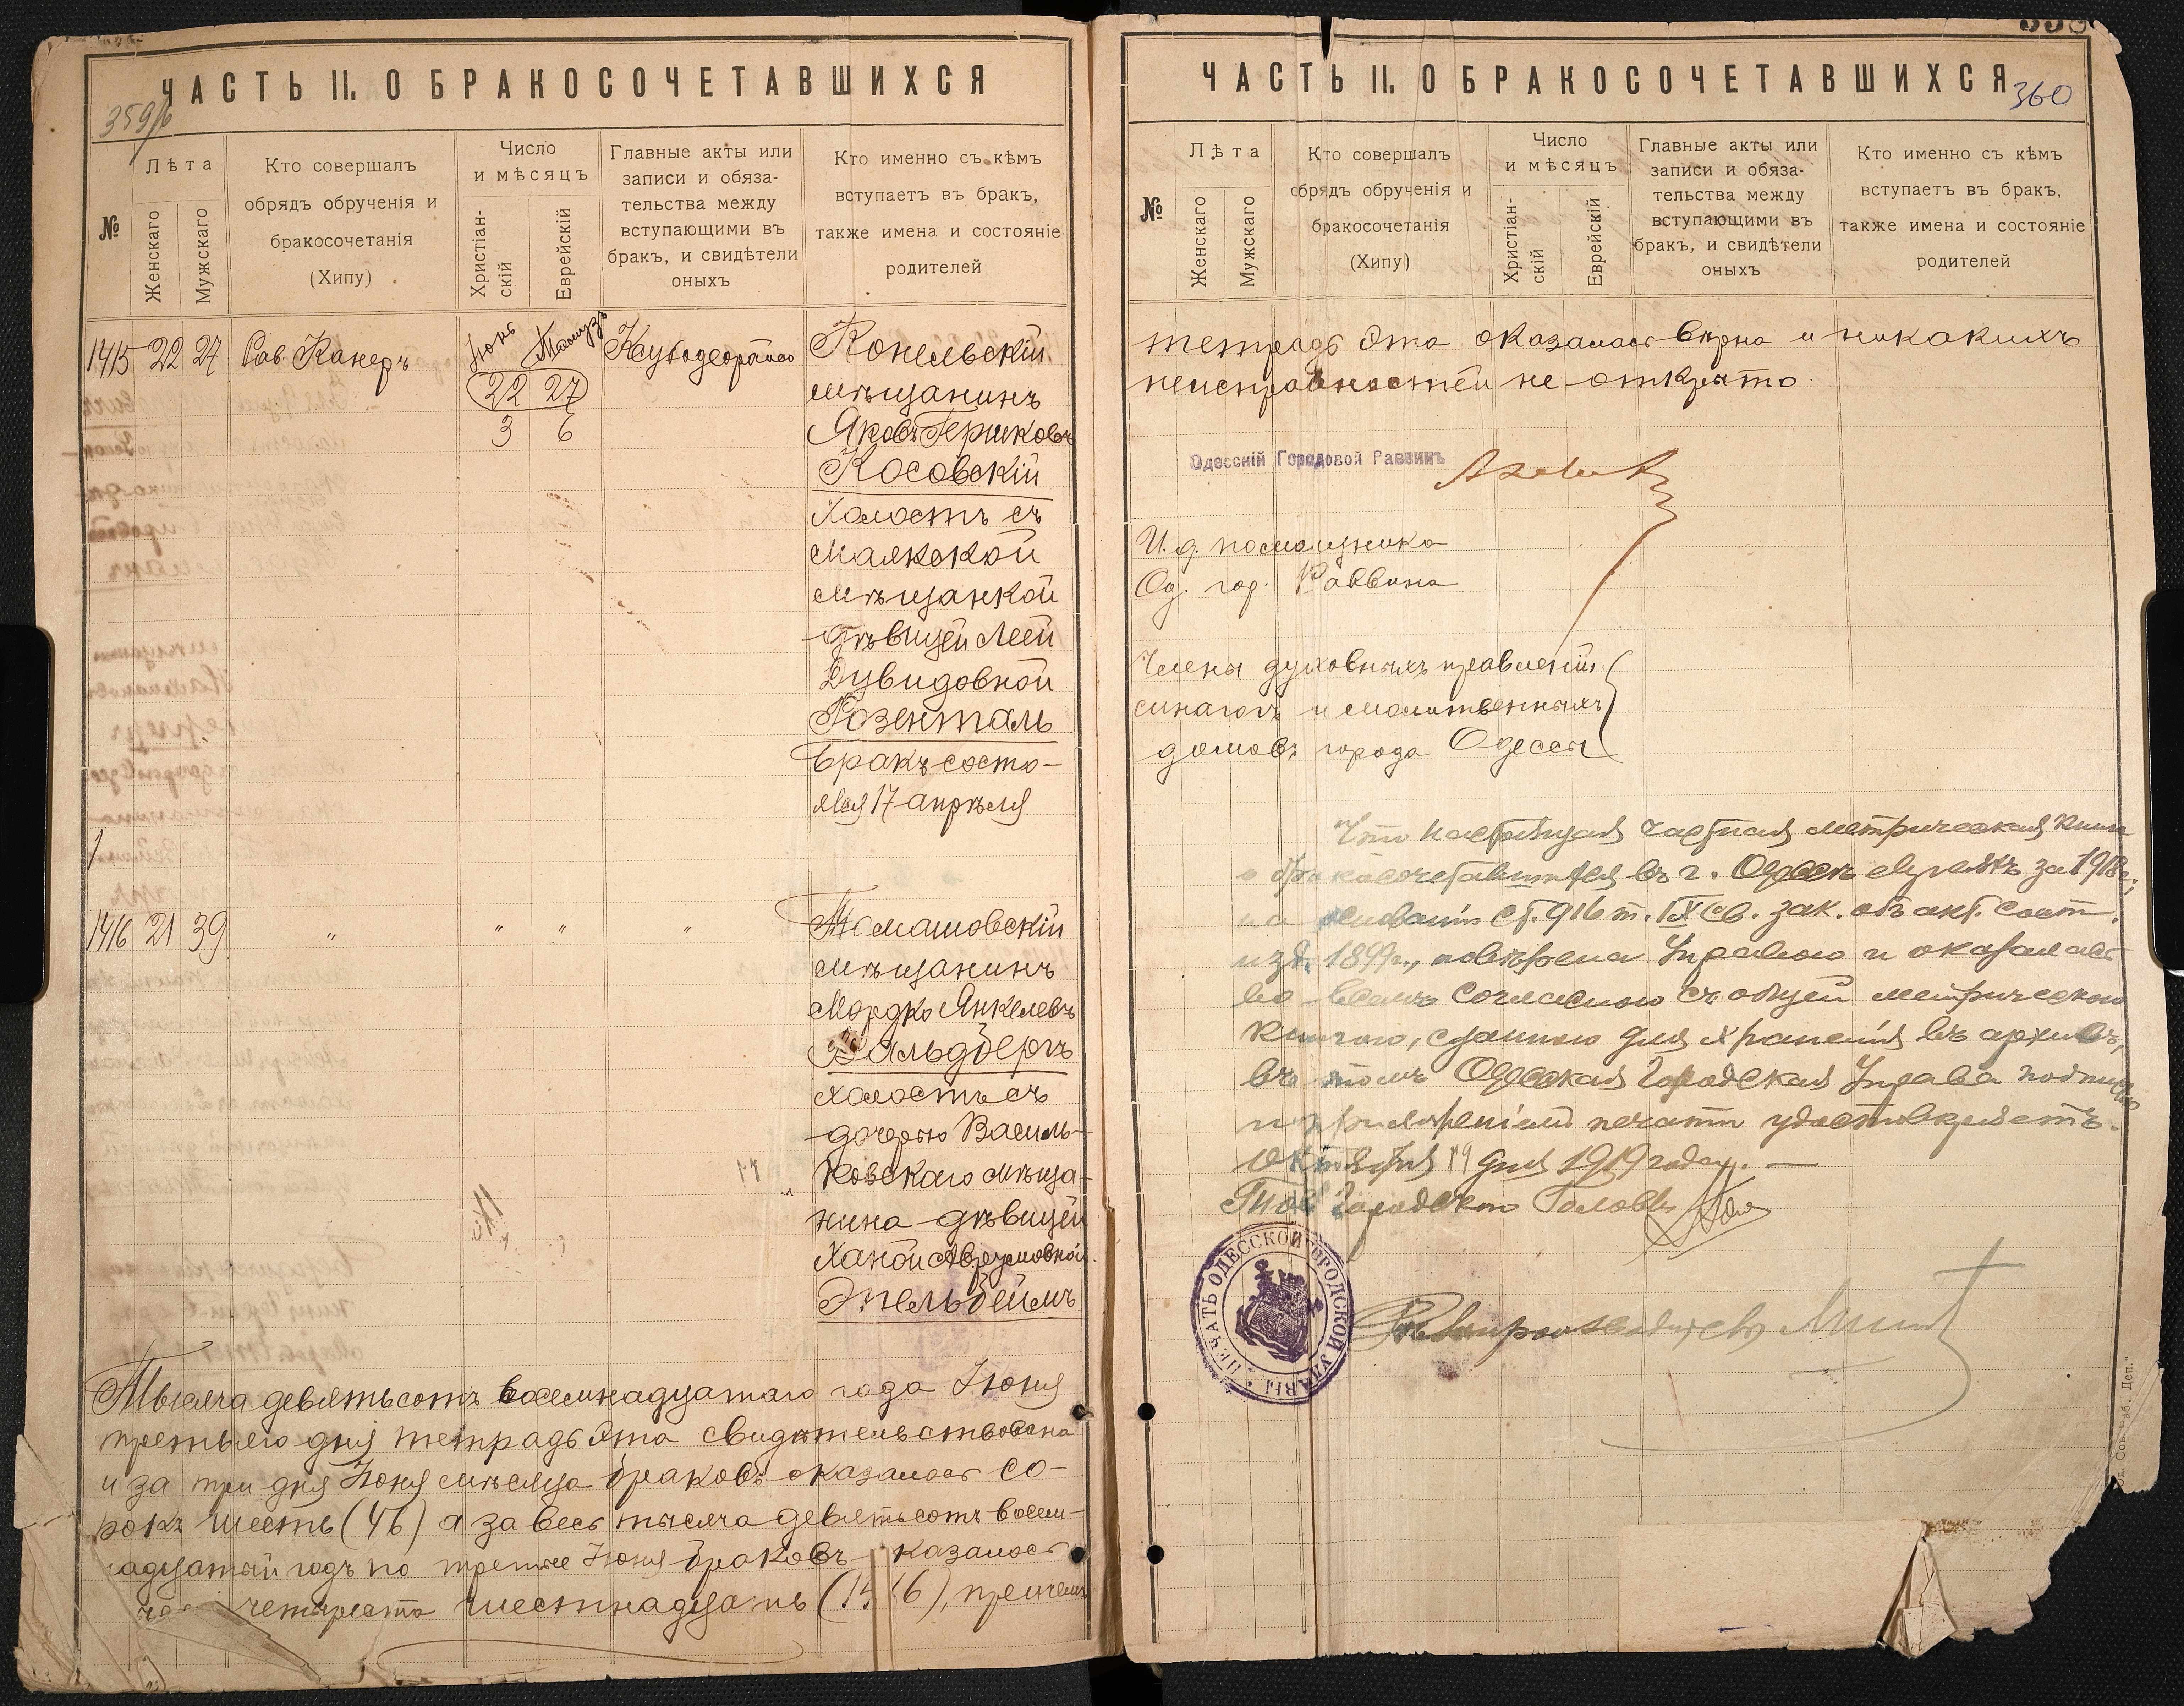 ЧАСТЬ II. О БРАКОСОЧЕТАВШИХСЯ
359/б
№
Лѣта
Женскаго
Мужскаго
Кто совершалъ
обрядъ обрученія и
бракосочетанія
(Хипу)
Число
и мѣсяцъ
Христіан-
скій
Еврейскій
Главные акты или
записи и обяза-
тельства между
вступающими въ
бракъ, и свидѣтели
оныхъ
Кто именно съ кѣмъ
вступаетъ въ бракъ,
также имена и состояніе
родителей
1415 22 27 Рав. Канеръ Іюнь Тамузъ
22 27
3 6
Конельскій
мѣщанинъ
Яковъ Гершковъ
Косовскій
холостъ съ
Маякской
мѣщанкой
дѣвицей Леей
Дувидовной
Розенталь
Бракъ состо-
ялся 17 апрѣля
1416 21 39 " " " "
Томашовскій
мѣщанинъ
Мордко Янкелевъ
Вальдбергъ
холостъ съ
дочерью Василь-
ковскаго мѣща-
нина дѣвицей
Ханой Аврумовной
Эпельбеймъ
Тысяча девятьсотъ восемнадцатаго года Іюня
третьяго дня тетрадь эта свидѣтельствована
и за три дня Іюня мѣсяца браковъ оказалось со-
рокъ шесть (46) а за весь тысяча девятьсотъ восем-
надцатый годъ по третье Іюня браковъ казалось
четыреста шестнадцать (1416), причемъ
ЧАСТЬ II. О БРАКОСОЧЕТАВШИХСЯ
360
№
Лѣта
Женскаго
Мужскаго
Кто совершалъ
обрядъ обрученія и
бракосочетанія
(Хипу)
Число
и мѣсяцъ
Христіан-
скій
Еврейскій
Главные акты или
записи и обяза-
тельства между
вступающими въ
бракъ, и свидѣтели
оныхъ
Кто именно съ кѣмъ
вступаетъ въ бракъ,
также имена и состояніе
родителей
тетрадь эта оказалась вѣрна и никакихъ
неисправностей не открыто
Одесскій Городовой Раввинъ
И. д. помощника
Од. гор. Раввина
Члены духовныхъ правленій
синагогъ и молитвенныхъ
домовъ города Одессы
Что настоящая частная метрическая книга
о бракосочетавшихся въ г. Одессѣ евреяхъ за 1918 г.,
на основаніи ст. 916 т. IX св. зак. объ акт. сост.
изд. 1899 г., повѣрена Управою и оказалась
во всемъ согласною съ общей метрическою
книгою, сданною для храненія въ архивъ,
въ томъ Одесская Городская Управа подписью
и приложеніемъ печати удостовѣряетъ.
Октября 19 дня 1919 года. —
Тов. Городского Головы
ПЕЧАТЬ ОДЕССКОЙ ГОРОДСКОЙ УПРАВЫ
Дѣлопроизводитель